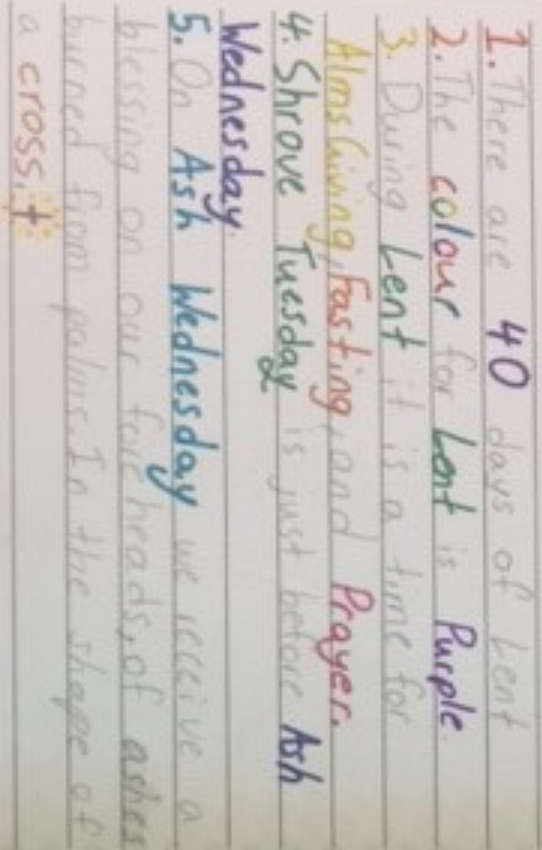 1. There are 40 days of Lent
2. The colour for Lent is Purple.
3. During Lent it is a time for
Alms Giving, Fasting, and Prayer.
4. Shrove Tuesday is just before Ash
Wednesday.
5. On Ash Wednesday we receive a
blessing on our fore heads, of ashes
burned from palms. In the shape of
a cross. †